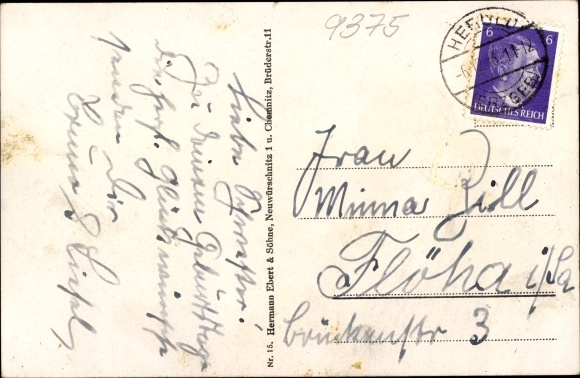 9375
6 6
DEUTSCHES REICH
Liebe Schwester!
Zu Deinem Geburtstage
die herzl. Glückwünsche
senden Dir
Erna &
Nr. 15. Hermann Ebert & Söhne, Neuwürschnitz 1 u. Chemnitz, Brüderstr. 11
Frau
Minna Zill
Flöha i/Sa
Brückenstr 3